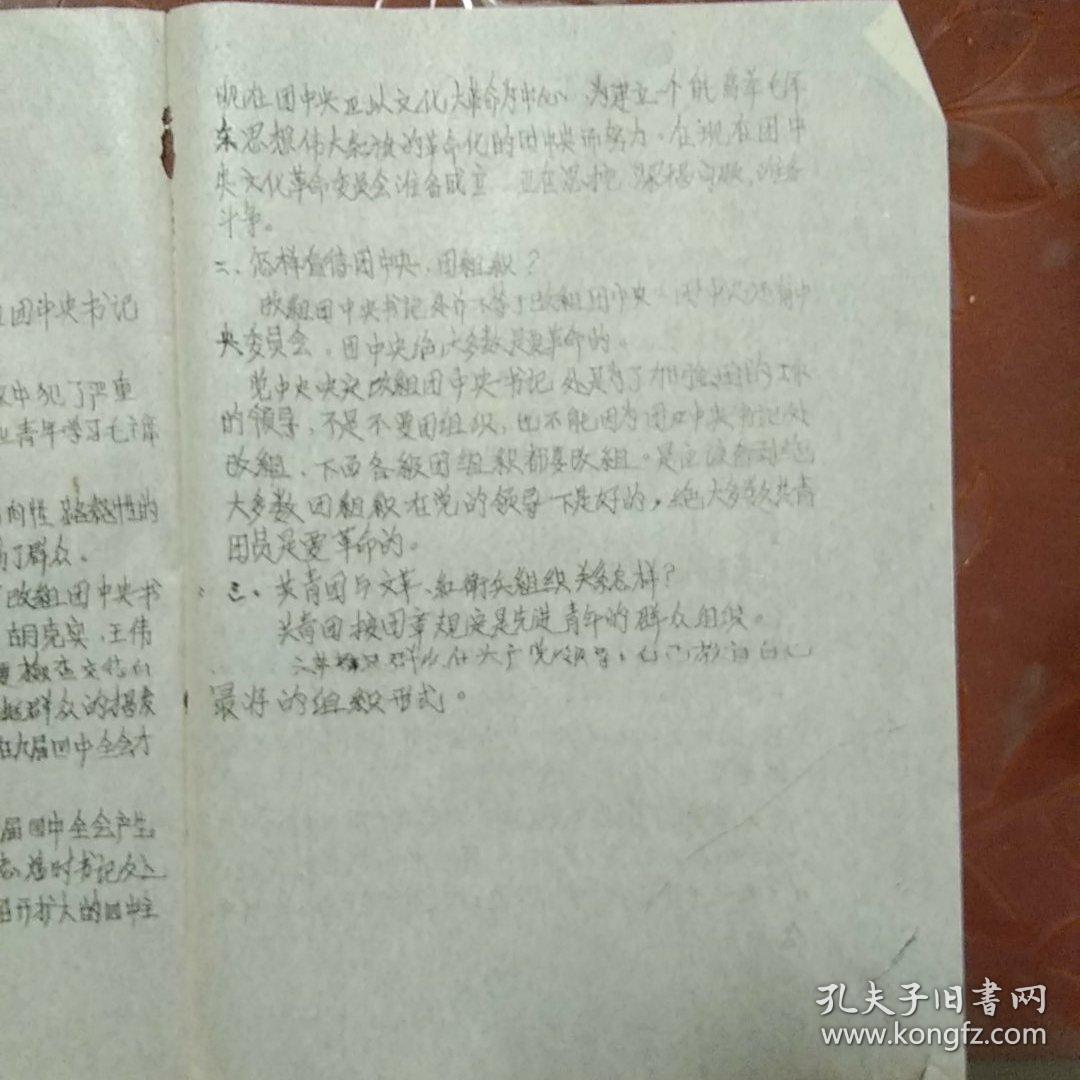 团中央书记
中犯了严重
青年学习毛主席
向性、路线性的
了群众。
改组团中央书
胡克实、王伟
检查交待
群众的揭发
在九届四中全会才
届四中全会产生
临时书记处
召开扩大的四中全
现在团中央正以文化大革命为中心,为建立一个能高举毛泽
东思想伟大红旗的革命化的团中央而努力。在现在团中
央文化革命委员会准备成立 正在思想 准备
斗争。
二、怎样看待团中央、团组织?
改组团中央书记处并不等于改组团中央 团中央还有中
央委员会,团中央绝大多数是要革命的。
党中央决定改组团中央书记处是为了加强团的工作
的领导,不是不要团组织,也不能因为团中央书记处
改组,下面各级团组织都要改组。是应该看到绝
大多数团组织在党的领导下是好的,绝大多数共青
团员是要革命的。
三、共青团与文革、红衛兵组织关系怎样?
共青团按团章规定是先进青年的群众组织。
文革 群众在共产党领导下自己教育自己
最好的组织形式。
孔夫子旧書网
www.kongfz.com